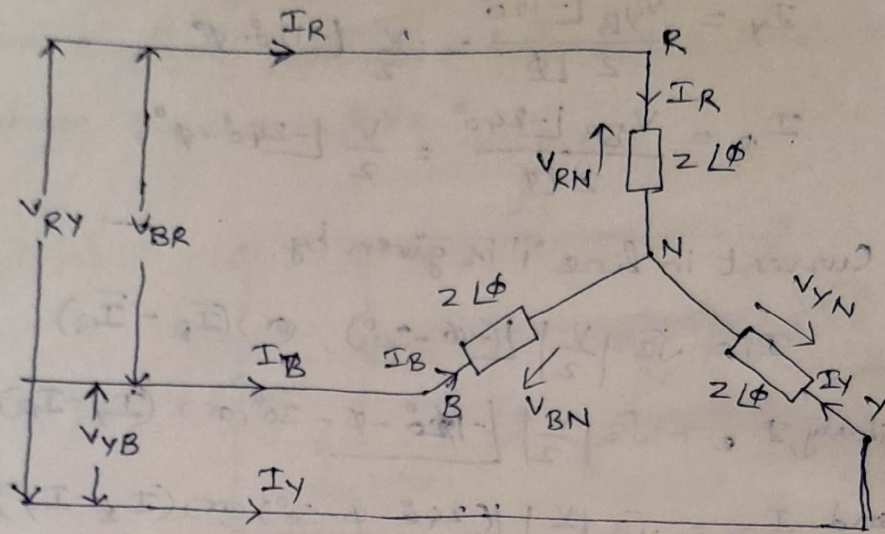 I_R
R
I_R
V_RN
Z∠φ
V_RY
V_BR
N
Z∠φ
V_YN
I_B
I_B
Z∠φ
I_Y
B
V_BN
Y
V_YB
I_Y